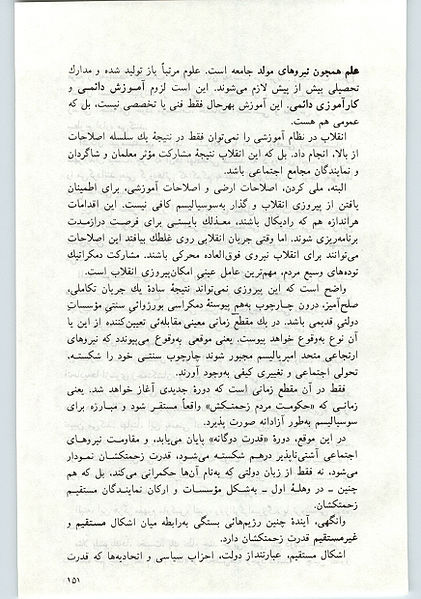 علم همچون نیروهای مولد جامعه است. علوم مرتباً باز تولید شده و مدارک
تحصیلی بیش از پیش لازم می‌شوند. این است لزوم آمـوزش دائمـی و
کارآموزی دائمی. این آموزش بهرحال فقط فنی یا تخصصی نیست، بل که
عمومی هم هست.
انقلاب در نظام آموزشی را نمی‌توان فقط در نتیجهٔ یك سلسله اصلاحات
از بالا، انجام داد. بل که این انقلاب نتیجهٔ مشارکت مؤثر معلمان و شاگردان
و نمایندگان مجامع اجتماعی باشد.
البته، ملی کردن، اصلاحات ارضی و اصلاحات آموزشی، برای اطمینان
یافتن از پیروزی انقلاب و گذار به‌سوسیالیسم کافی نیست. این اقدامات
هراندازه هم که رادیکال باشند، معـذلك بایستـی برای فرصـت درازمدت
برنامه‌ریزی شوند. اما وقتی جریان انقلابی روی غلطك بیافتد این اصلاحات
می‌توانند برای انقلاب نیروی فوق‌العاده محرکی باشند. مشارکت دمکراتیك
توده‌های وسیع مردم، مهم‌ترین عامل عینی امکان‌پیروزی انقلاب است.
واضح است که این پیروزی نمی‌تواند نتیجهٔ سادهٔ یك جریان تکاملی،
صلح‌آمیز، درون چـارچوب به‌هم پیوستهٔ دمکراسی بورژوائی سنتیِ مؤسسات
دولتیِ قدیمی باشد. در یك مقطع زمانی معینی مقابله‌ئی تعیین‌کننده از این یا
آن نوع به‌وقوع خواهد پیوست. یعنی موقعی به‌وقوع می‌پیوندد که نیروهای
ارتجاعی متحد امپریالیسم مجبور شوند چارچوب سنتـی خود را شکستـه،
تحولی اجتماعی و تغییری کیفی به‌وجود آورند.
فقط در آن مقطع زمانی است که دورهٔ جدیدی آغاز خواهد شد. یعنی
زمانـی که «حکومـت مردم زحمتـکش» واقعاً مستقـر شود و مبـارزه برای
سوسیالیسم به‌طور آزادانه صورت پذیرد.
در این موقع، دورهٔ «قدرت دوگانه» پایان می‌یابد، و مقاومت نیروهـای
اجتماعی آشتی‌ناپذیر درهـم شکستـه می‌شـود، قدرت زحمتکشـان نمـودار
می‌شود، نه فقط از زبان دولتی که به‌نام آن‌ها حکمرانی می‌کند، بل که هم
چنین ـ در وهلـهٔ اول ـ به‌شکل مؤسسـات و ارکان نماینـدگان مستقیـم
زحمتکشان.
وانگهی، آیندهٔ چنین رژیم‌هائی بستگی به‌رابطه میان اشکال مستقیم و
غیرمستقیم قدرت زحمتکشان دارد.
اشکال مستقیم، عبارتنداز دولت، احزاب سیاسی و اتحادیه‌ها که قدرت
۱۵۱